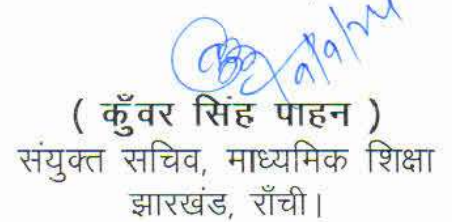 ( कुँवर सिंह पाहन )
संयुक्त सचिव, माध्यमिक शिक्षा
झारखंड, राँची।